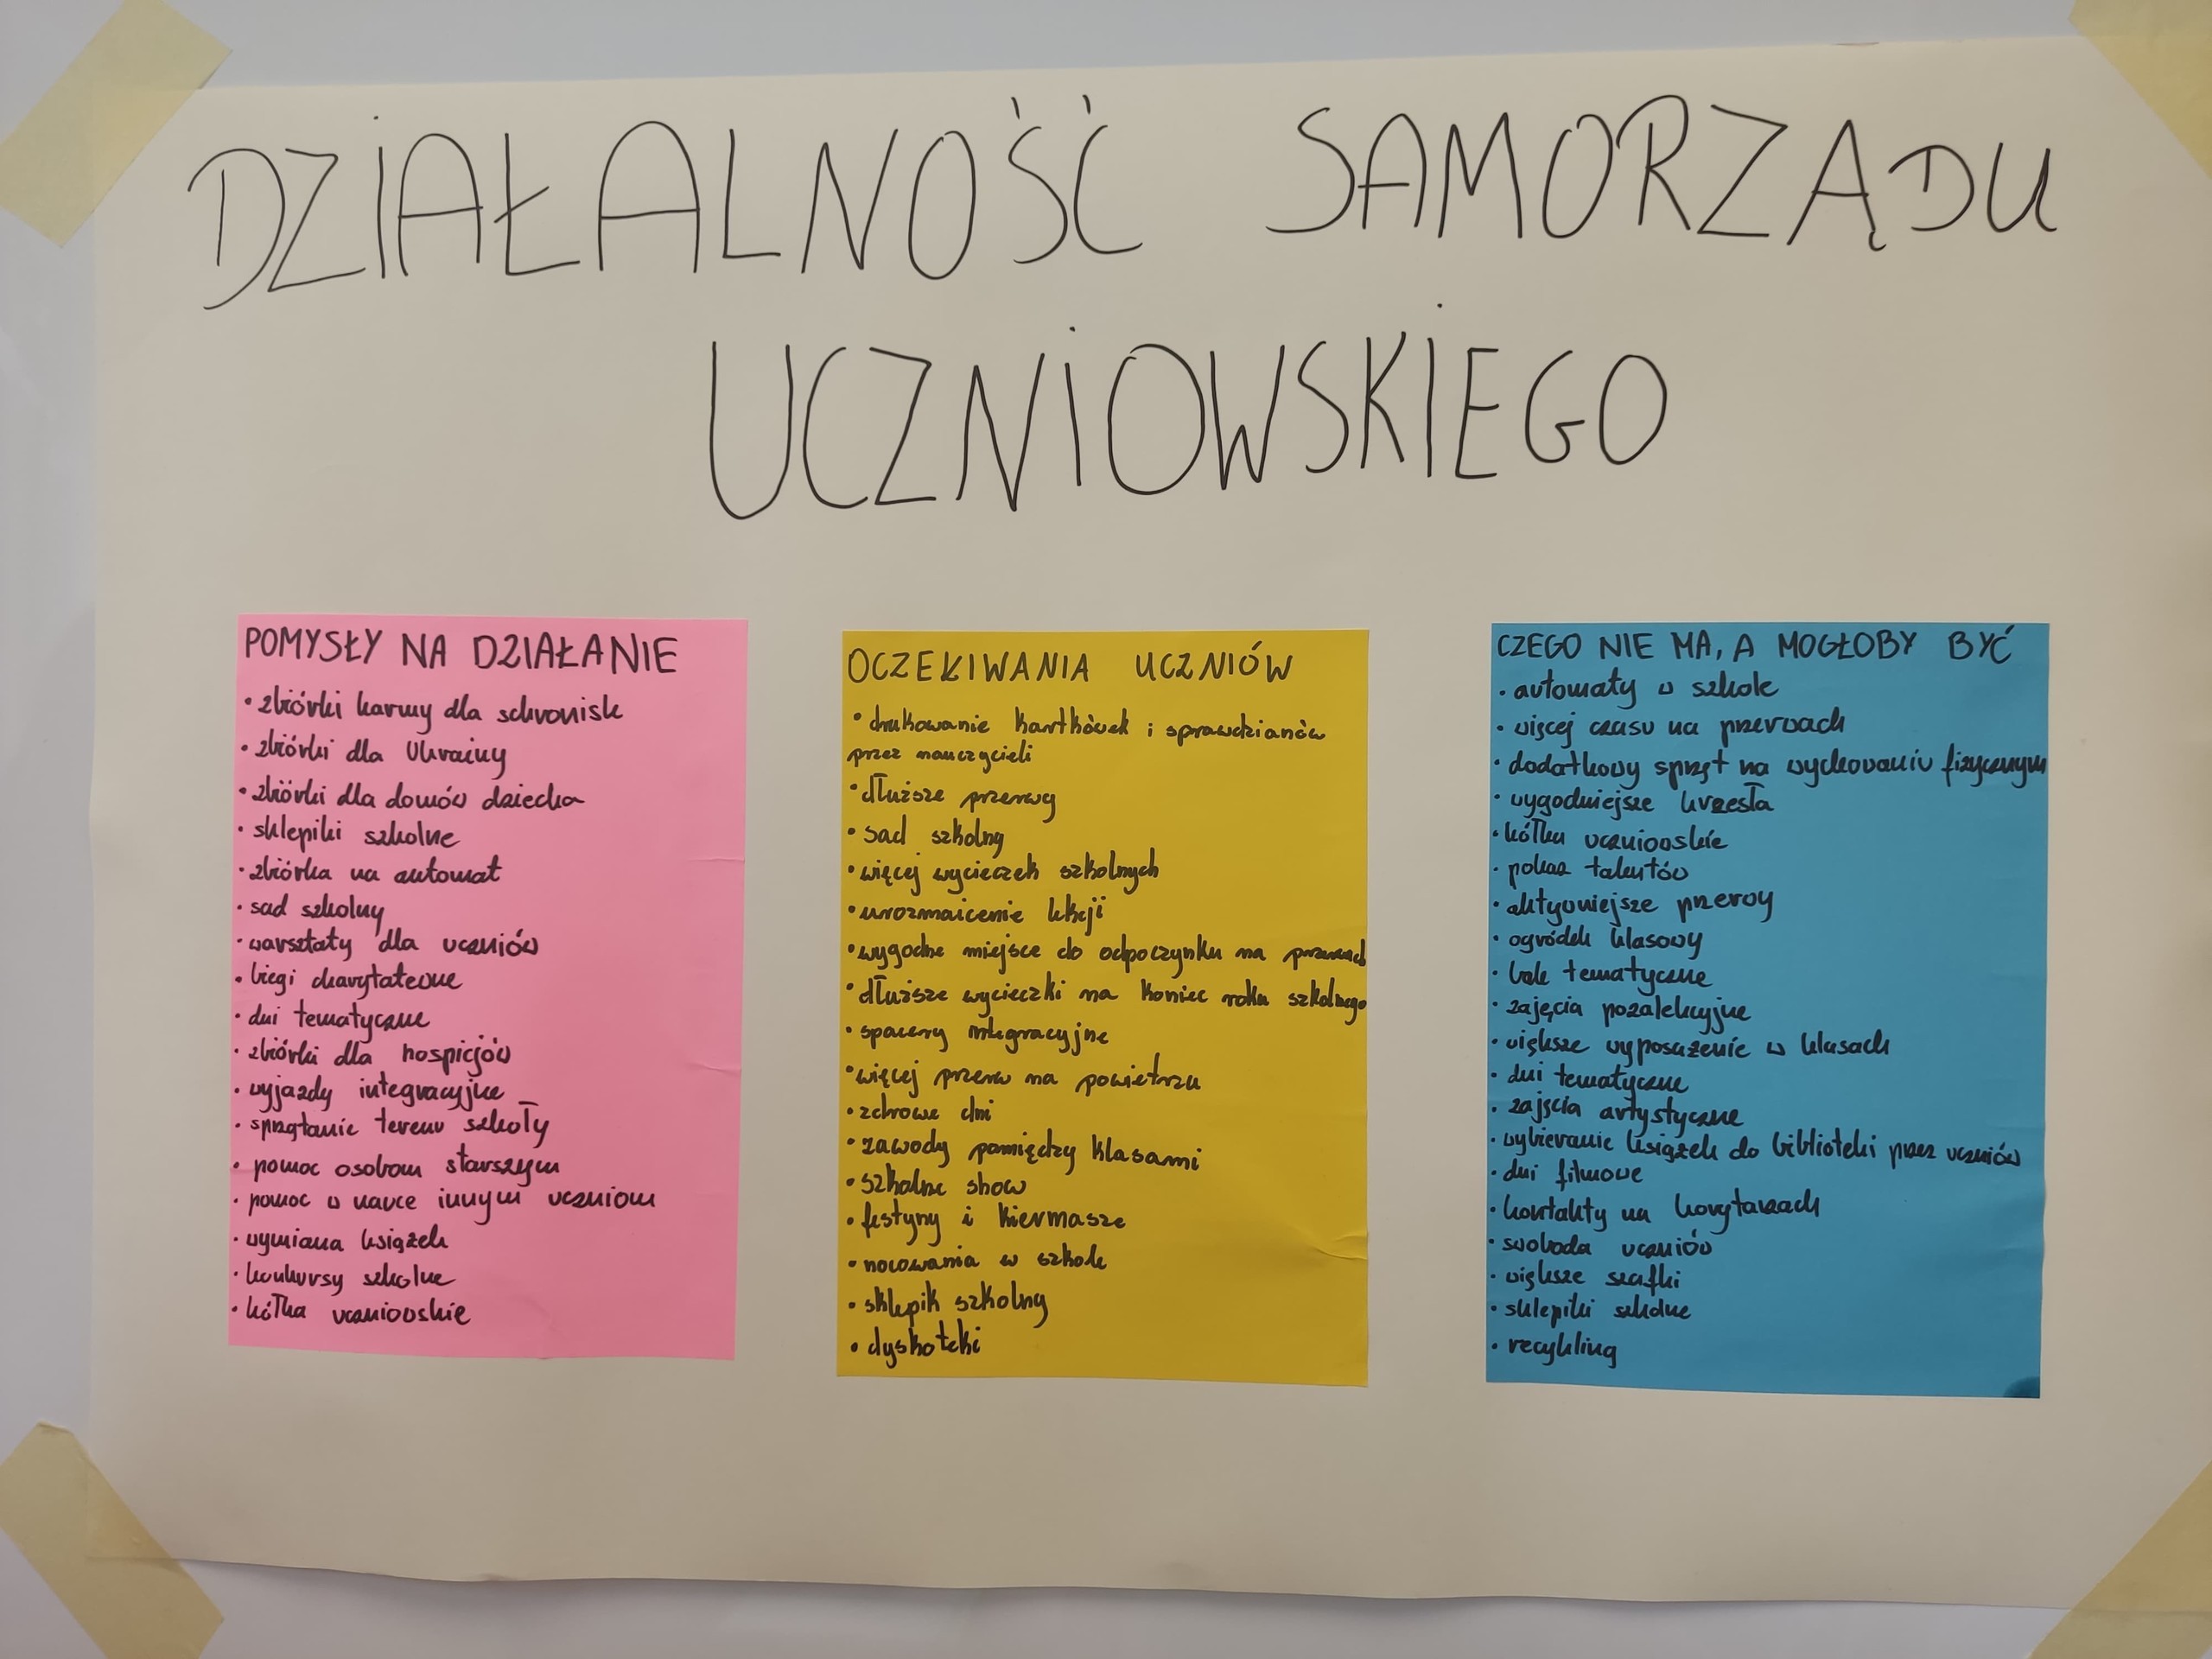 DZiAŁALNOŚĆ SAMORZĄDU
UCZNiOWSKiEGO
POMYSŁY NA DZIAŁANIE
• zbiórki karmy dla schronisk
• zbiórki dla Ukrainy
• zbiórki dla domów dziecka
• sklepiki szkolne
• zbiórka na automat
• sad szkolny
• warsztaty dla uczniów
• biegi charytatewne
• dni tematyczne
• zbiórki dla hospicjów
• wyjazdy integracyjne
• sprzątanie terenu szkoły
• pomoc osobom starszym
• pomoc w nauce innym uczniom
• wymiana książek
• konkursy szkolne
• kółka uczniowskie
OCZEKIWANIA UCZNIÓW
• drukowanie kartkówek i sprawdzianów
przez nauczycieli
• dłuższe przerwy
• sad szkolny
• więcej wycieczek szkolnych
• urozmaicenie lekcji
• wygodne miejsce do odpoczynku na przerwach
• dłuższe wycieczki na koniec roku szkolnego
• spacery integracyjne
• więcej przerw na powietrzu
• zdrowe dni
• zawody pomiędzy klasami
• szkolne show
• festyny i kiermasze
• nocowania w szkole
• sklepik szkolny
• dyskoteki
CZEGO NIE MA, A MOGŁOBY BYĆ
• automaty w szkole
• więcej czasu na przerwach
• dodatkowy sprzęt na wychowaniu fizycznym
• wygodniejsze krzesła
• kółka uczniowskie
• pokaz talentów
• aktywniejsze przerwy
• ogródek klasowy
• bale tematyczne
• zajęcia pozalekcyjne
• większe wyposażenie w klasach
• dni tematyczne
• zajęcia artystyczne
• wybieranie książek do biblioteki przez uczniów
• dni filmowe
• kontakty na korytarzach
• swoboda uczniów
• większe szafki
• sklepiki szkolne
• recykling